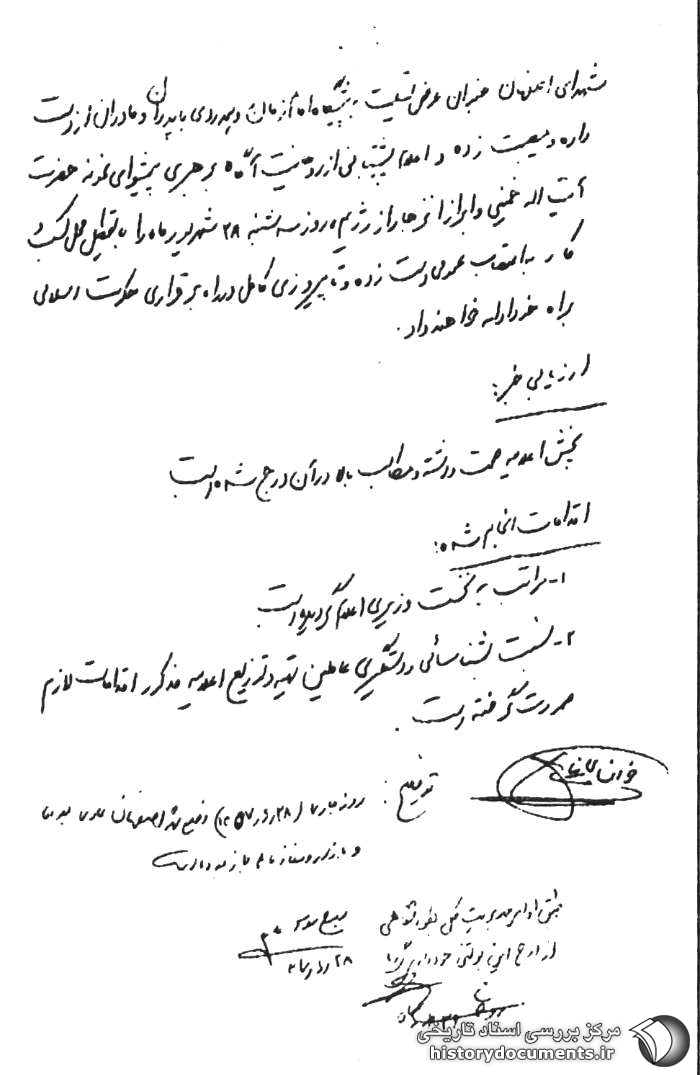 شهدای اصفهان ضمن عرض تسلیت به پیشگاه امام زمان و همدردی با پدران و مادران از دست
داده و مصیبت زده و اعلام پشتیبانی از روحانیت آگاه برهبری پیشوای نمونه حضرت
آیت اله خمینی و ابراز انزجار از رژیم، روز سه شنبه ۲۸ شهریور ماه را با تعطیل محل کسب و
کار به اعتصاب عمومی دست زده و تا پیروزی کامل در راه برقراری حکومت اسلامی
براه خود ادامه خواهند داد.
ارزیابی خبر:
پخش اعلامیه صحت داشته و مطالب بالا در آن درج شده است
اقدامات انجام شده:
۱- مراتب به نخست وزیری اعلام گردیده است
۲- نسبت به شناسائی و دستگیری عاملین تهیه و توزیع اعلامیه مذکور اقدامات لازم
صورت گرفته است.
توضیح: روز جاری (۲۸ر۶ر۵۷) وضع شهر اصفهان عادی
و بازار و مغازه ها باز
طبق اوامر مدیریت کل
از درج این بولتن خودداری گردد
۲۸ر۶ر
مرکز بررسی اسناد تاریخی
historydocuments.ir